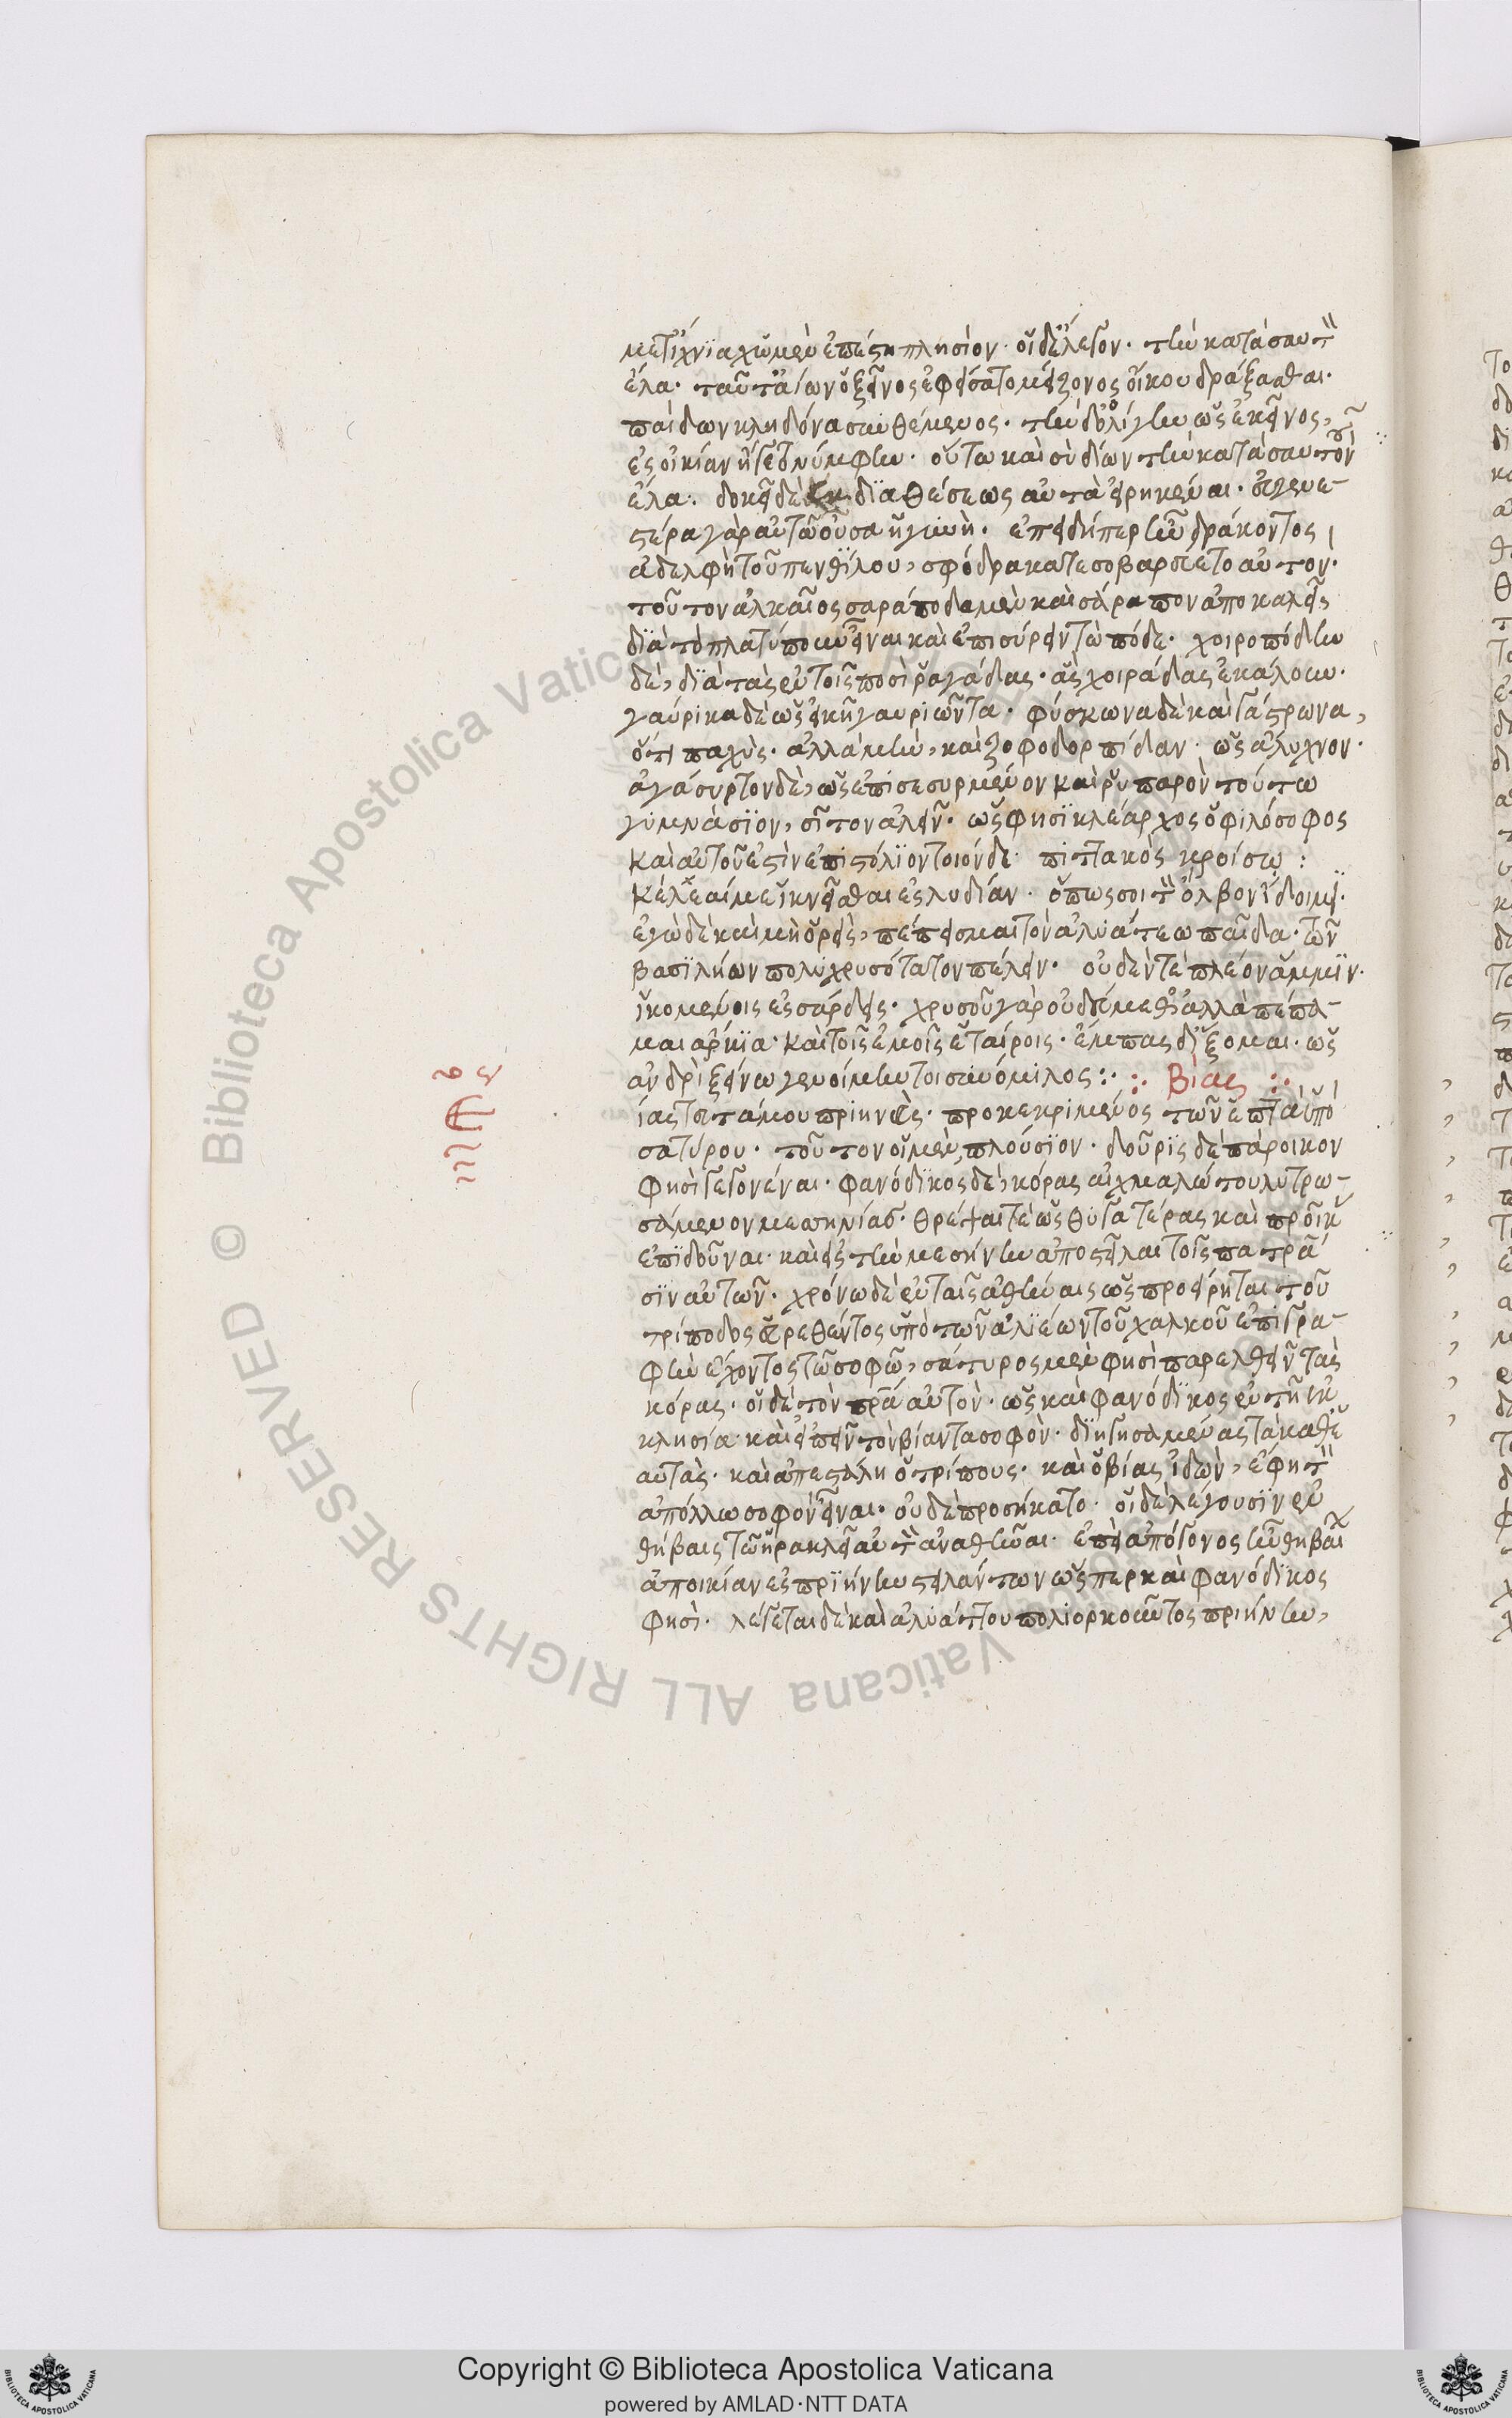 με τἴχνια χὦ μὲν ἐπέστη πλησίον· οἱ δ' ἔλεγον· τὴν κατὰ σαυτὸν
ἔλα· ταῦτ' ἀΐων ὁ ξεῖνος ἐφείσατο μείζονος οἴκου δράξασθαι·
παίδων κληδόνα συνθέμενος· τὴν δ' ὀλίγην ὡς ἐκεῖνος,
ἐς οἰκίαν ἤγετο νύμφην· οὕτω καὶ σὺ δίων τὴν κατὰ σαυτὸν
ἔλα· δοκεῖ δὲ ἐκ διαθέσεως αὐτὰ εἰρηκέναι· εὐγενε-
στέρα γὰρ αὐτῶ οὖσα ἡ γυνὴ· ἐπειδήπερ ἦν δράκοντος
ἀδελφὴ τοῦ πενθίλου, σφόδρα κατεσοβαρεύετο αὐτὸν·
τοῦτον ἀλκαῖος σαράποδα μὲν καὶ σάραπον ἀποκαλεῖ
διὰ τὸ πλατύπουν εἶναι καὶ ἐπισύρειν τὼ πόδε· χειροπόδην
δὲ, διὰ τὰς ἐν τοῖς ποσὶ ῥαγάδας· ἃς χοιράδας ἐκάλουν·
γαύρικα δὲ ὡς εἰκῆ γαυριῶντα· φύσκωνα δὲ καὶ γάστρωνα,
ὅτι παχὺς· ἀλλὰ μὴν, καὶ ζοφοδορπίδαν· ὡς ἄλυχνον·
ἀγάσυρτον δὲ, ὡς ἐπισεσυρμένον καὶ ῥυπαρὸν τούτω
γυμνάσιον, σῖτον ἀλεῖν· ὥς φησι κλέαρχος ὁ φιλόσοφος
καὶ αὐτοῦ ἐστὶν ἐπιστόλιον τοιόνδε· πιττακὸς κροίσῳ :
κέλεαί με ἱκνεῖσθαι ἐς λυδίαν· ὅπως σοι τὸν ὄλβον ἴδοιμι·
ἐγὼ δὲ καὶ μὴ ὁρεὶς, πέπεισμαι τὸν ἀλυάτεω παῖδα· τῶν
βασιλήων πολυχρυσότατον πέλειν· οὐδέν τε πλέον ἄμμιν·
ἱκομένοις ἐς σάρδεις· χρυσοῦ γὰρ οὐ δεύμεθ' ἀλλὰ πέπα-
μαι ἄρκια· καὶ τοῖς ἐμοῖς ἑταίροις· ἔμπας δ' ἵξομαι· ὡς
ἀνδρὶ ξείνω γενοίμην τοι συνόμιλος :· :· βίας :·
ίας τευτάμου πριηνεὺς· προκεκριμένος τῶν ἑπτὰ ὑπὸ
σατύρου· τοῦτον οἱ μὲν, πλούσιον· δοῦρις δὲ πάροικον
φησὶ γεγονέναι· φανόδικος δὲ, κόρας αἰχμαλώτου λυτρω-
σάμενον μεσηνίας· θρέψαι τε ὡς θυγατέρας καὶ προῖκας
ἐπιδοῦναι· καὶ εἰς τὴν μεσήνην ἀποστεῖλαι τοῖς πατρά-
σιν αὐτῶν· χρόνω δὲ ἐν ταῖς ἀθήναις ὡς προείρηται τοῦ
τρίποδος εὑρεθέντος ὑπὸ τῶν ἁλιέων τοῦ χαλκοῦ ἐπιγρα-
φὴν ἔχοντος τῶ σοφῶ, σάτυρος μὲν φησὶ παρελθεῖν τὰς
κόρας· οἱ δὲ τὸν πρα αὐτῶν· ὡς καὶ φανόδικος ἐν τῆ ἐκ
κλησία· καὶ εἰπεῖν τὸν βίαντα σοφὸν· διηγησαμένας τὰ καθ'
αὑτὰς· καὶ ἀπεστάλη ὁ τρίπους· καὶ ὁ βίας ἰδὼν, ἔφη τὸν
ἀπόλλω σοφὸν εἶναι· οὐδὲ προσήκατο· οἱ δὲ λέγουσιν ἐν
θήβαις τῶ ἡρακλεῖ αὐτὸν ἀναθεῖναι· ἐπεὶ ἀπόγονος ἦν θηβαίων
ἀποικίαν ἐς πριήνην στειλάντων ὥσπερ καὶ φανόδικος
φησὶ· λέγεται δὲ καὶ ἀλυάττου πολιορκοῦντος πριήνην,
Copyright © Biblioteca Apostolica Vaticana
powered by AMLAD·NTT DATA